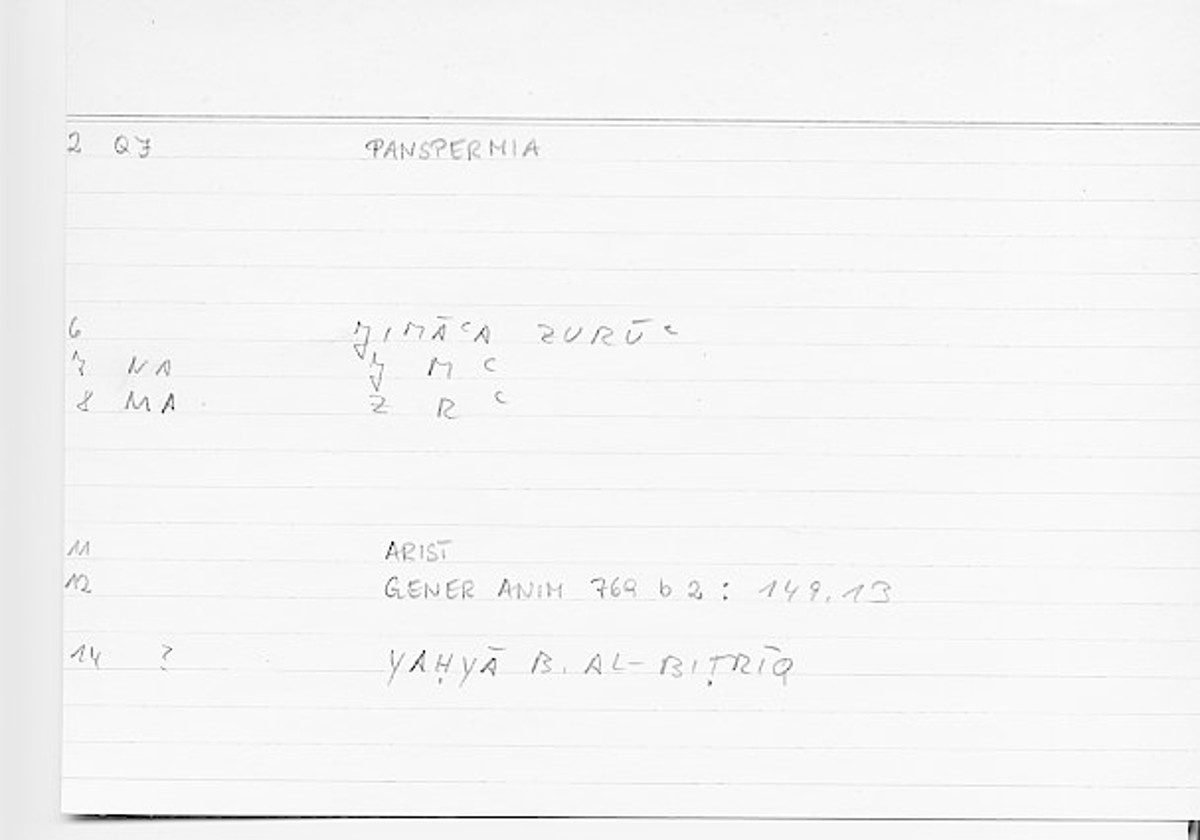 2 QJ PANSPERMIA
6 ǦIMĀʿA ZURŪʿ
7 NA Ǧ M ʿ
8 MA Z R ʿ
11 ARIST
12 GENER ANIM 769 b 2 : 149.13
14 ? YAḤYĀ B. AL-BIṬRĪQ